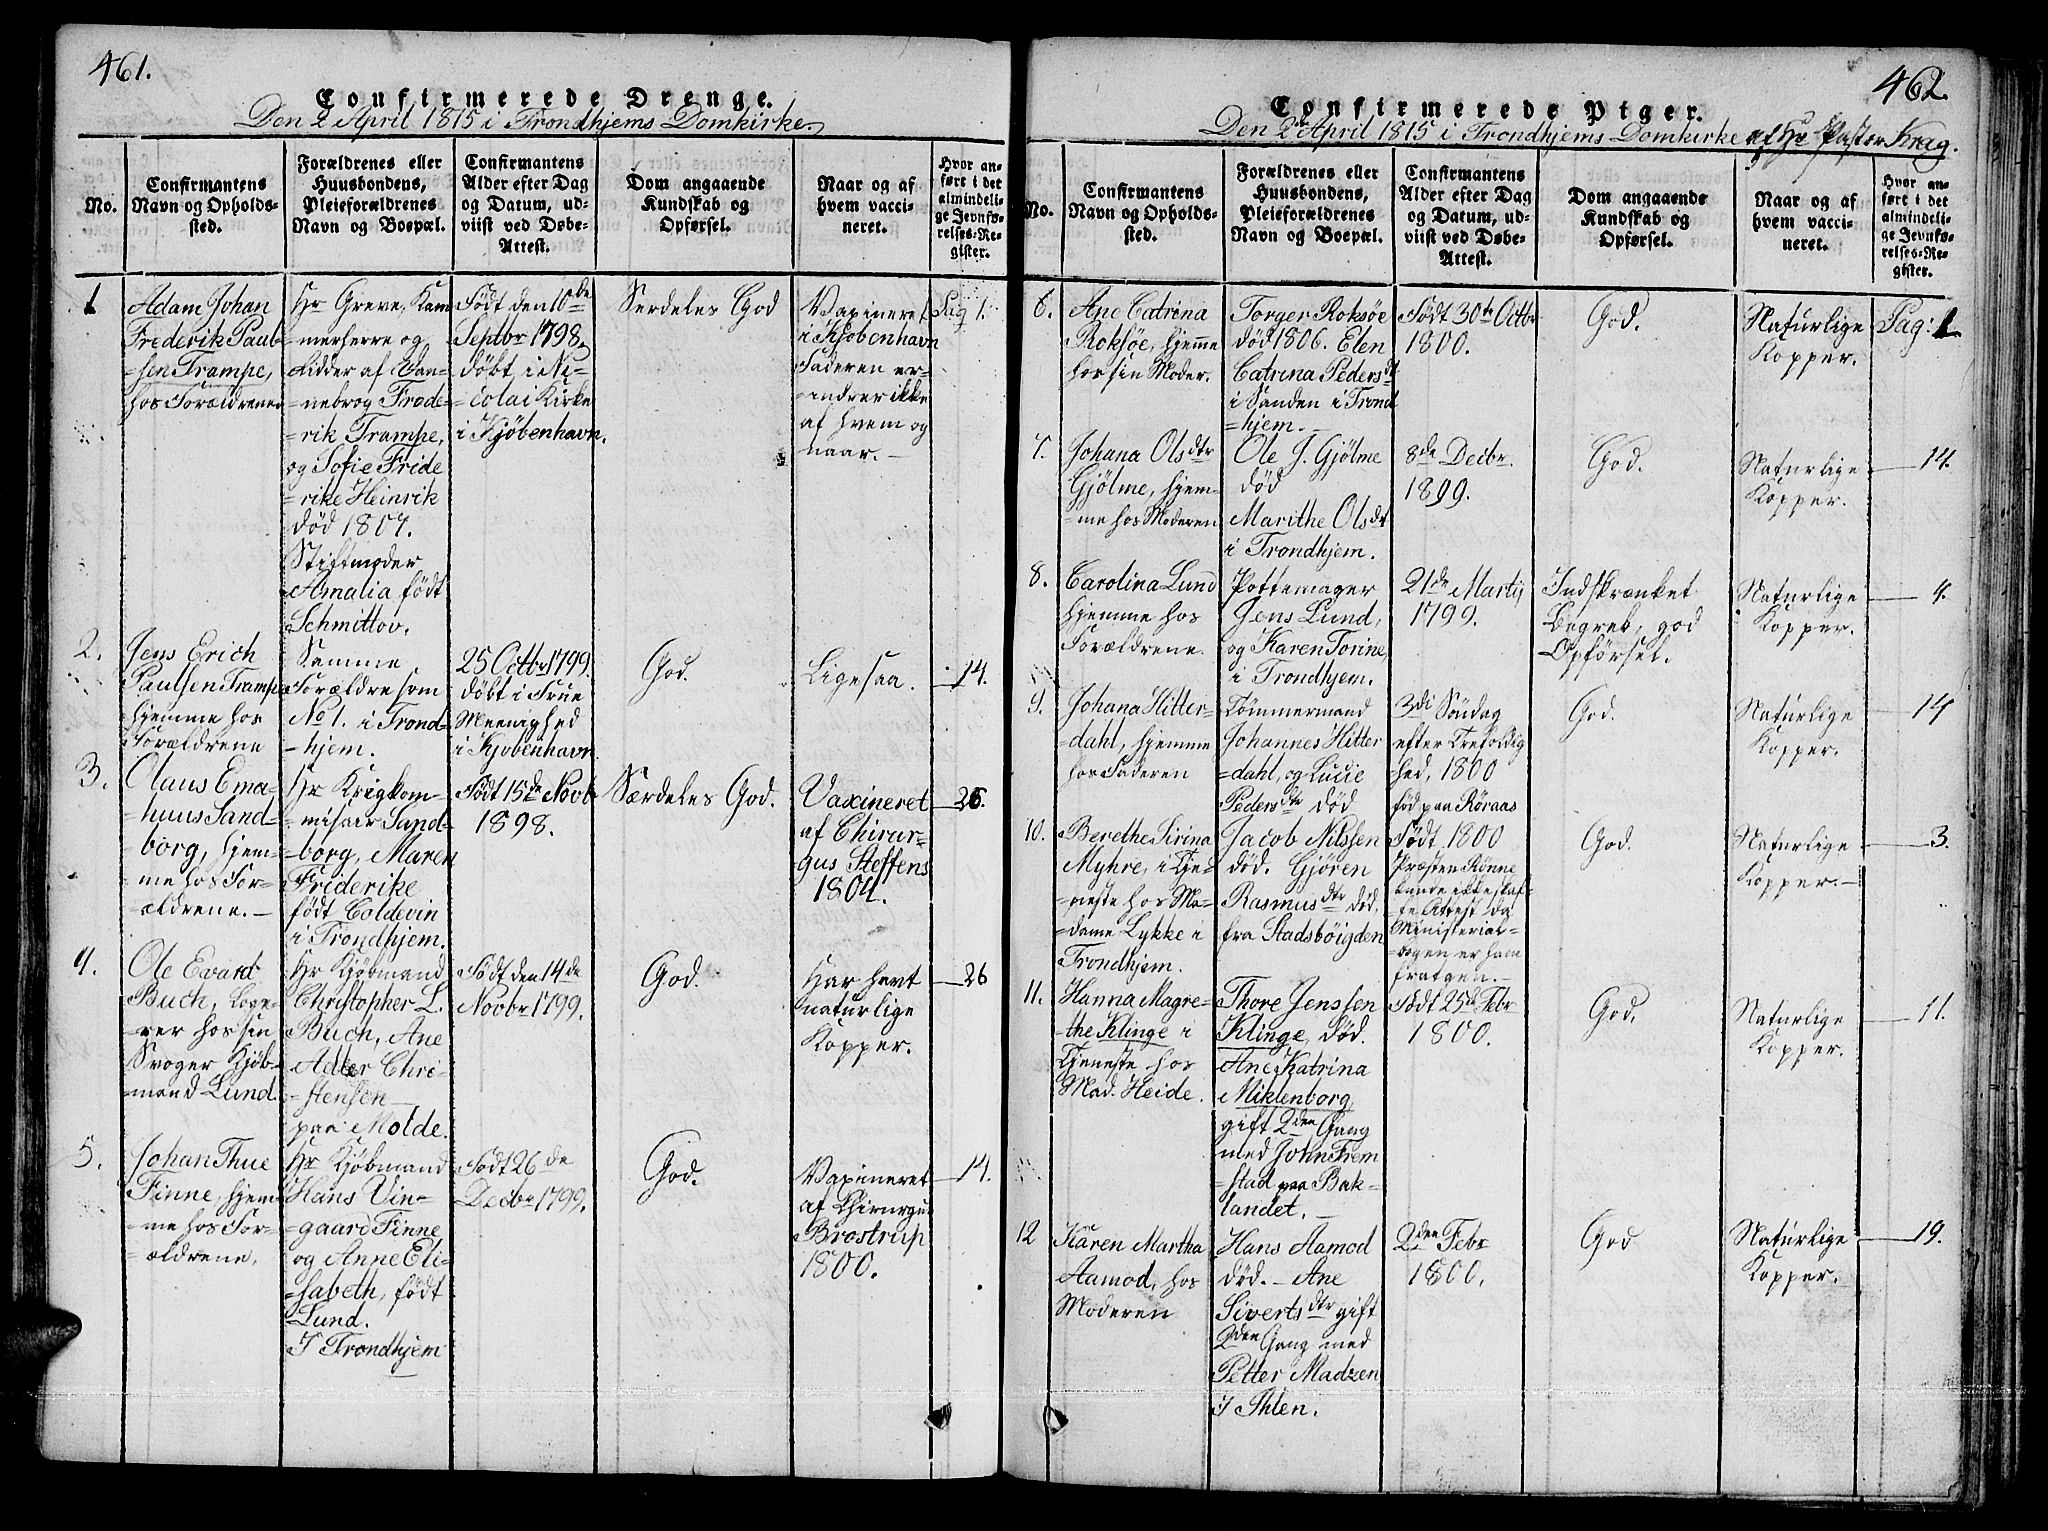 461.
Confirmerede Drenge.
Den 2 April 1815 i Trondhjems Domkirke.
No.
Confirmantens
Navn og Opholds-
sted.
Forældrenes eller
Huusbondens,
Pleieforældrenes
Navn og Boepæl.
Confirmantens
Alder efter Dag
og Datum, ud-
viist ved Døbe-
Attest.
Dom angaaende
Kundskab og
Opførsel.
Naar og af
hvem vacci-
neret.
Hvor an-
ført i det
almindeli-
ge Jevnfø-
relses-Re-
gister.
1
Adam Johan
Frederik Paul-
=sen Trampe,
hos Forældrene
Hr Greve, Kam
=merherre og
Ridder af Dan-
=nebrog Frede-
=rik Trampe,
og Sofie Fride
=rike Heinrik
død 1807.
Stiftmoder
Amalia født
Schmittov.
Født den 10de
Septbr 1798,
døbt i Ni-
=colai Kirke
i Kjøbenhavn.
Serdeles God
Vaxineret
i Kjøbenhavn
Faderen er-
=indrer ikke
af hvem og
naar.-
Pag 1.
2.
Jens Erich
Paulsen Trampe
hjemme hos
Forældrene
Samme
Forældre som
No 1. i Trond-
-hjem.
25 Octbr 1799.
døbt i Frue
Meenighed
i Kjøbenhavn
God.
Ligesaa.
14.
3.
Olaus Ema-
=nuus Sand-
borg, hjem-
me hos For-
=ældrene.-
Hr Krigkom-
=misair Sand-
=borg, Maren
Friderike
født Coldevin
i Trondhjem.
Født 15de Novbr
1898.
Særdeles God.
Vaxineret
af Chirur-
gus Steffens
1804.
26.
4.
Ole Evard
Buch, Loge-
rer hos sin
Svoger Kjøb-
mand Lund.
Hr Kjøbmand
Christopher L.
Buch, Ane
Adler Chri-
=stensen
paa Molde.
Født den 14de
Novbr 1799.
God.
Har havt
naturlige
Kopper.
26
5.
Johan Thue
Finne, hjem
=me hos For-
=ældrene.
Hr Kjøbmand
Hans Vin-
=gaard Finne
og Anne Eli-
=sabeth, født
Lund.
I Trondhjem
Født 26de
Decbr 1799.
God.
Vaxineret
af Chirurgus
Brostrup
1800.
14.
462.
Confirmerede Piger.
Den 2de April 1815 i Trondhjems Domkirke af Hr Pastor Krag.
No.
Confirmantens
Navn og Opholds-
sted.
Forældrenes eller
Huusbondens,
Pleieforældrenes
Navn og Boepæl.
Confirmantens
Alder efter Dag
og Datum, ud-
viist ved Døbe-
Attest.
Dom angaaende
Kundskab og
Opførsel.
Naar og af
hvem vacci-
neret.
Hvor an-
ført i det
almindeli-
ge Jevnfø-
relses-Re-
gister.
6.
Ane Catrina
Roksøe, hjeme
hos sin Moder.
Torger Roksøe
død 1806. Elen
Catrina Peders dt
i Sanden i Trond
=hjem.
Født 30te Octbr
1800.
God.
Naturlige
Kopper.
Pag: 1
7.
Johana Olsdtr
Gjølme, hjem-
=me hos Moderen
Ole J. Gjølme
død
Marithe Olsdt
i Trondhjem.
8de Decbr.
1899.
God.
Naturlige
Kopper.
14.
8.
Carolina Lund
hjemme hos
Forældrene
Pottemager
Jens Lund,
og Karen Torine,
i Trondhjem.
21de Martij
1799.
Indskrænket
Begreb, god
Opførsel.
Naturlige
Kopper.
4.
9.
Johana Hitter-
=dahl, hjemme
hos Faderen
Tømmermand
Johannes Hitter
=dahl, og Lucie
Peders dtr død
3die Søndag
efter Trefoldig
hed, 1800
fød paa Røraas
God.
Naturlige
Kopper.
14
10.
Berethe Sirina
Myhre, i Tje-
=neste hos Ma-
=dame Lykke i
Trondhjem.
Jacob Nilssen
død. Gjøren
Rasmus dtr død,
fra Stadsbøigden
Født 1800
Præsten Rønne
kunde ikke skaf-
=fe Attest da
Ministerial-
=bogen er ham
fratgen.-
God.
Naturlige
Kopper.-
3.
11.
Hanna Magre-
=the Klinge i
Tjeneste hos
Mad. Heide.
Thore Jenssen
Klinge, død.
Ane Katrina
Miklenborg
gift 2den Gang
med John Frem
=stad paa Bak-
landet.-
Født 25de Febr
1800.
God.
Naturlige
Kopper.
11.
12
Karen Martha
Aamod, hos
Moderen
Hans Aamod
død.- Ane
Siverts dtr gift
2den Gang med
Petter Madzen
I Ihlen.
2den Febr
1800.
God
Naturlige
Kopper.
19.